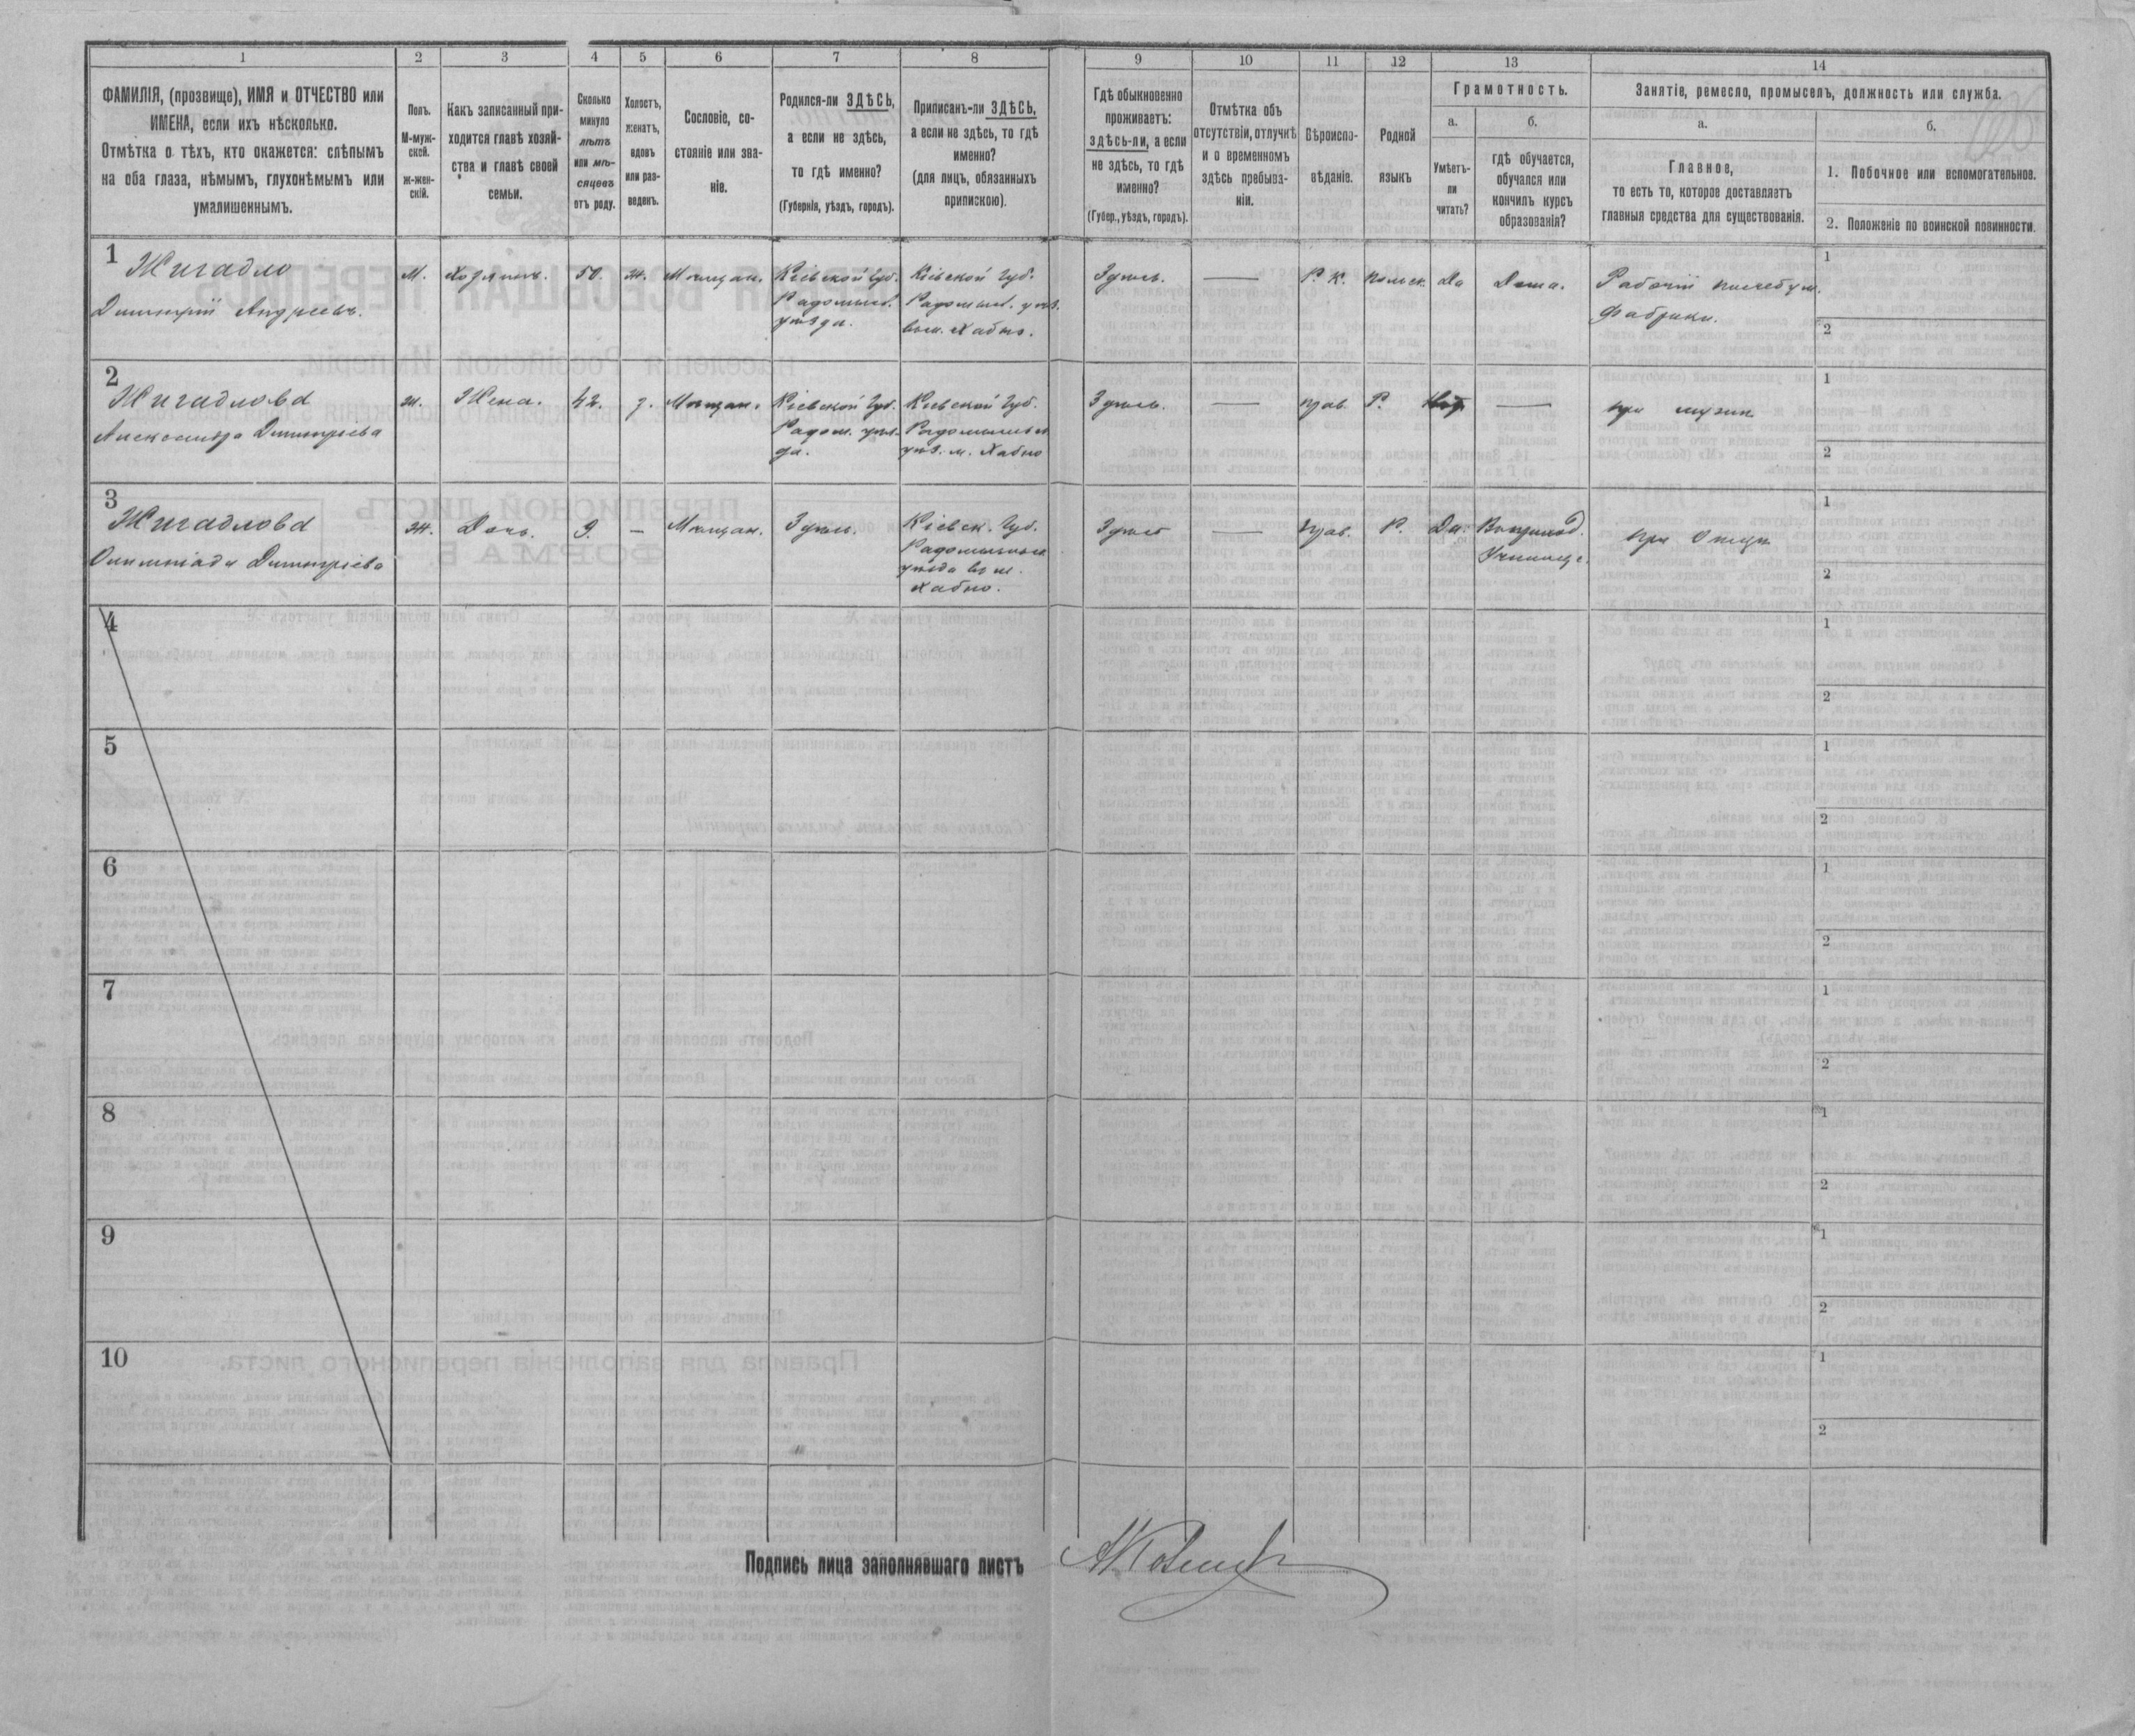 1
2
3
4
5
6
7
8
9
10
11
12
13
14
ФАМИЛІЯ, (прозвище), ИМЯ и ОТЧЕСТВО или
ИМЕНА, если ихъ нѣсколько.
Отмѣтка о тѣхъ, кто окажется: слѣпымъ
на оба глаза, нѣмымъ, глухонѣмымъ или
умалишеннымъ.
Полъ.
М-муж-
ской.
ж-жен-
скій.
Какъ записанный при-
ходится главѣ хозяй-
ства и главѣ своей
семьи.
Сколько
минуло
лѣтъ
или мѣ-
сяцевъ
отъ роду.
Холостъ,
женатъ,
вдовъ
или раз-
веденъ.
Сословіе, со-
стояніе или зва-
ніе.
Родился-ли ЗДѢСЬ,
а если не здѣсь,
то гдѣ именно?
(Губернія, уѣздъ, городъ).
Приписанъ-ли ЗДѢСЬ,
а если не здѣсь, то гдѣ
именно?
(для лицъ, обязанныхъ
припискою).
Гдѣ обыкновенно
проживаетъ:
здѣсь-ли, а если
не здѣсь, то гдѣ
именно?
(Губер., уѣздъ, городъ).
Отмѣтка объ
отсутствіи, отлучкѣ
и о временномъ
здѣсь пребыва-
ніи.
Вѣроиспо-
вѣданіе.
Родной
языкъ
Грамотность.
а.
Умѣетъ-
ли
читать?
б.
гдѣ обучается,
обучался или
кончилъ курсъ
образованія?
Занятіе, ремесло, промыселъ, должность или служба.
а.
Главное,
то есть то, которое доставляетъ
главныя средства для существованія.
б.
1. Побочное или вспомогательное.
2. Положеніе по воинской повинности.
1
Жигадло
Димитрій Андреевъ.
М.
Хозяинъ.
50.
ж.
Мѣщан.
Кіевской Губ.
Радомысл.
уѣзда.
Кіевской Губ.
Радомысл. уѣз.
въ м. Хабно.
Здѣсь.
—
Р. К.
Польск.
Да
Дома.
Рабочій писчебум.
фабрики.
1
2
2
Жигадлова
Александра Димитріева
ж.
Жена.
42.
з.
Мѣщан.
Кіевской Губ.
Радом. уѣз-
да.
Кіевской Губ.
Радомысльск.
уѣз. м. Хабно
Здѣсь.
—
прав.
Р.
Нѣт.
—
при мужѣ
1
2
3
Жигадлова
Олимпіада Димитріева
ж.
Дочь.
9.
—
Мѣщан.
Здѣсь.
Кіевск. Губ.
Радомысльск.
уѣзда въ м.
Хабно.
Здѣсь
—
Прав.
Р.
Да.
Училище.
при Отцѣ
1
2
4
1
2
5
1
2
6
1
2
7
1
2
8
1
2
9
1
2
10
1
2
Подпись лица заполнявшаго листъ